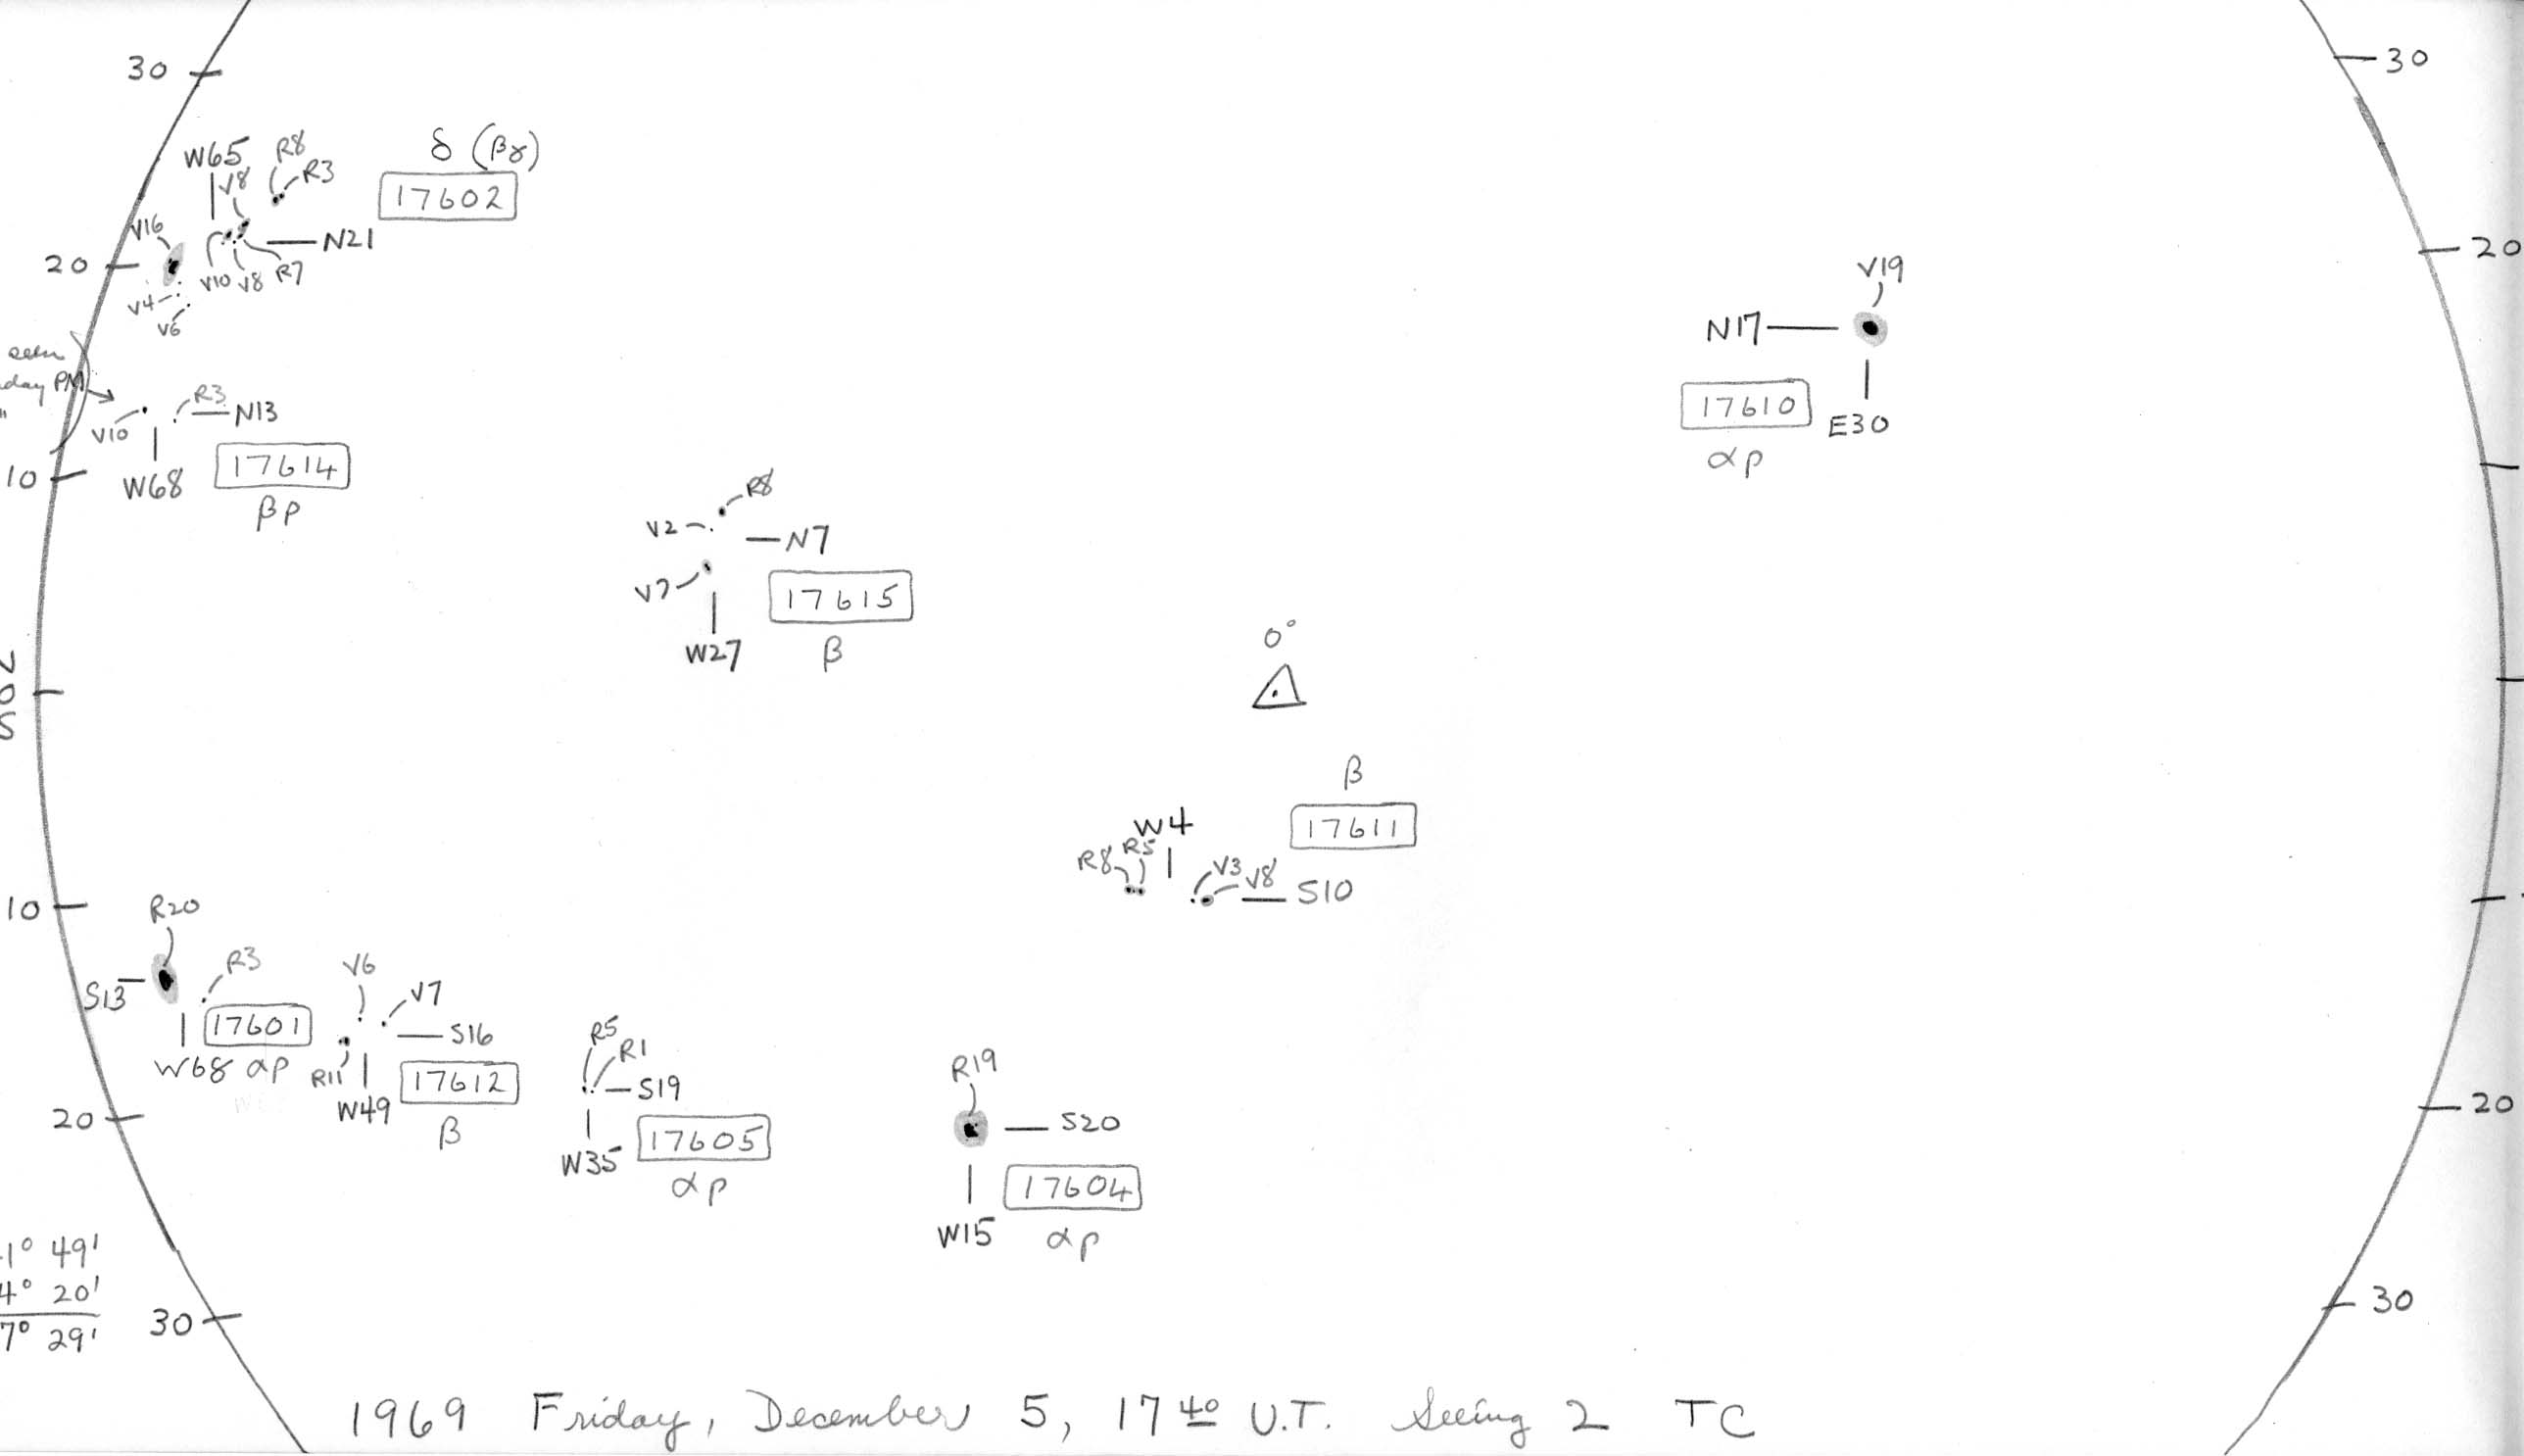 30
30
W65 R8
V8 R3
δ (βγ)
17602
V16
N21
20
V10 V8 R7
V4
V6
20
V19
N17
17610
E30
αp
seen
day PM
"
R3
N13
V10
10
W68
17614
βp
R8
V2
N7
V7
17615
W27
β
0°
N
0
S
β
17611
W4
R8 R5
V3 V8
S10
10
R20
S13
R3
17601
W68 αp
V6
V7
S16
R11
17612
W49
β
R5
R1
S19
17605
W35
αp
R19
S20
17604
W15
αp
20
20
1° 49'
4° 20'
7° 29'
30
30
1969 Friday, December 5, 17 40 U.T. Seeing 2 TC